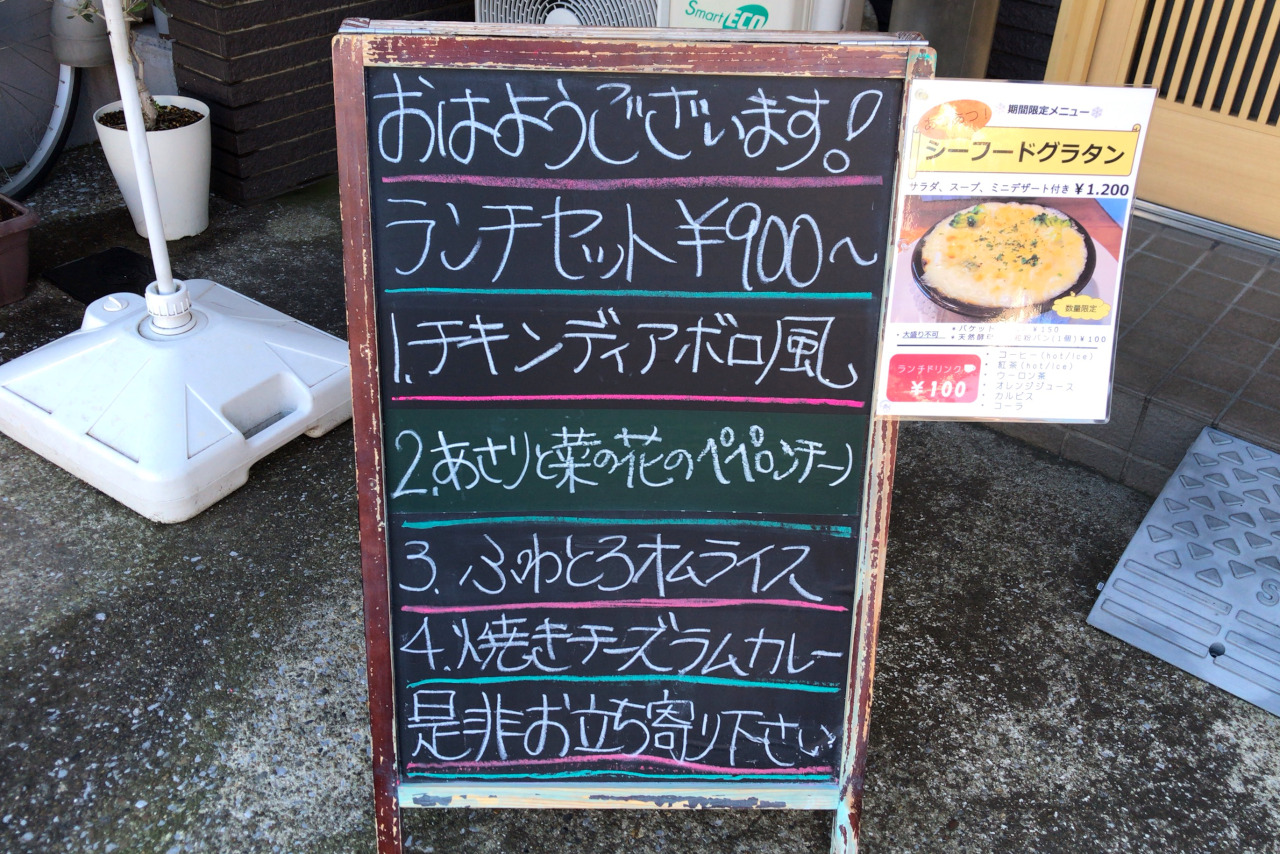 Smart ECO
おはようございます!
ランチセット¥900～
1.チキンディアボロ風
2.あさりと菜の花のペペロンチーノ
3.ふわとろオムライス
4.焼きチーズラムカレー
是非お立ち寄り下さい
期間限定メニュー
シーフードグラタン
サラダ、スープ、ミニデザート付き ¥1.200
数量限定
・大盛り不可
•バケット ¥150
•天然酵 パン(1個)¥100
ランチドリンク
¥100
・コーヒー(hot/ice)
・紅茶(hot/ice)
・ウーロン茶
・オレンジジュース
・カルピス
・コーラ